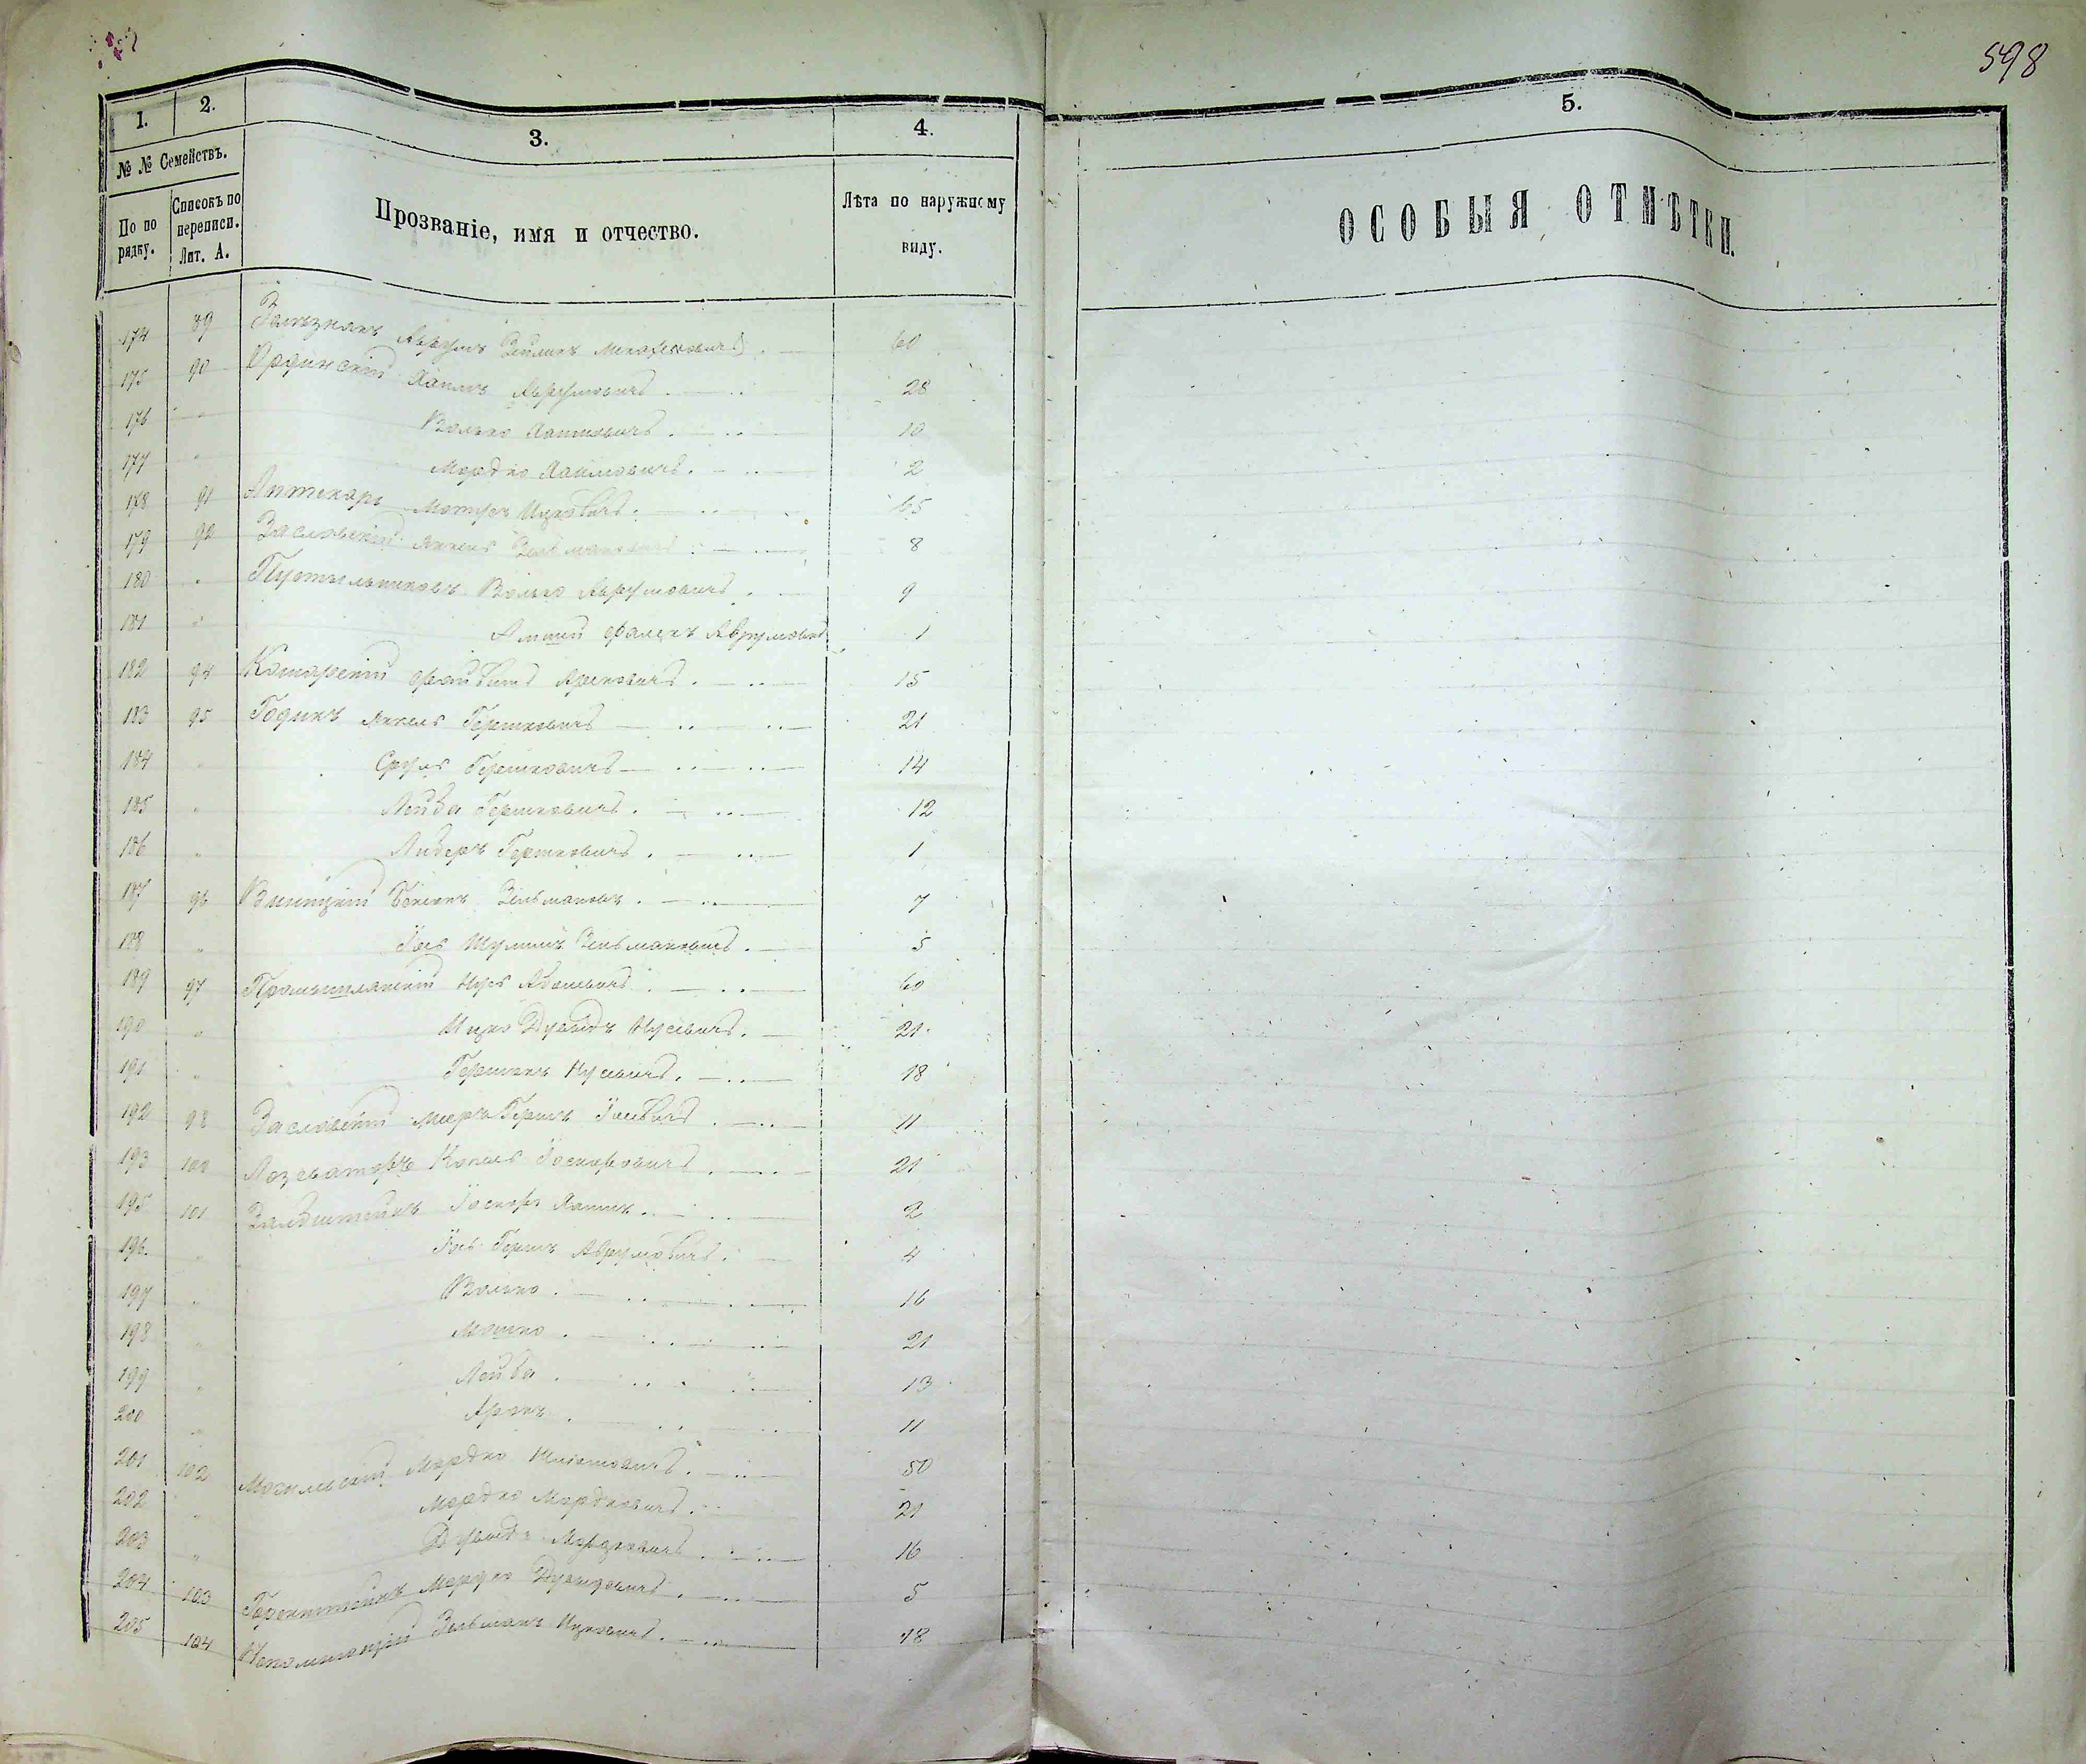 598
1. 2. 3. 4. 5.
№ № Семействъ.
По по рядку.
Списокъ по переписи. Лит. А.
Прозваніе, имя и отчество.
Лѣта по наружному виду.
ОСОБЫЯ ОТМѢТКИ.
174 89 Аврумъ Зейликъ 60
175 90 Ординскій Хаимъ Аврумовичъ 28
176 " Волько Хаимовичъ 10
177 " Мордко Хаимовичъ 2
178 91 Аптекарь Ицковичъ 65
179 92 Заславскій Янкель Зельмановичъ 8
180 " Пустыльниковъ Волько Аврумовичъ 9
181 " Фалекъ Аврумовичъ 1
182 94 Котарскій Файвишъ 15
183 95 Годикъ Янкель Гершковичъ 21
184 " Сруль Гершковичъ 14
185 " Лейба Гершковичъ 12
186 " Либеръ Гершковичъ 1
187 96 Зельмановъ 7
188 " Іось Шулимъ Зельмановичъ 5
189 97 Промышлянскій Нусь 60
190 " Ицко Дувидъ Нусевичъ 21
191 " Нусевичъ 18
192 98 Заславскій Мееръ Гершъ Іосевичъ 11
193 100 Копель Іосифовичъ 21
195 101 Зальдштейнъ Іосифъ Хаимъ 2
196 " Іось Гершъ Аврумовичъ 4
197 " Волько 16
198 " Мошко 21
199 " Лейба 13
200 " Аронъ 11
201 102 Могилевскій Мордко 50
202 " Мордко Мордковичъ 21
203 " Дувидъ Мордковичъ 16
204 103 Горенштейнъ Мордко Дувидовичъ 5
205 104 Зельманъ Ицковичъ 18